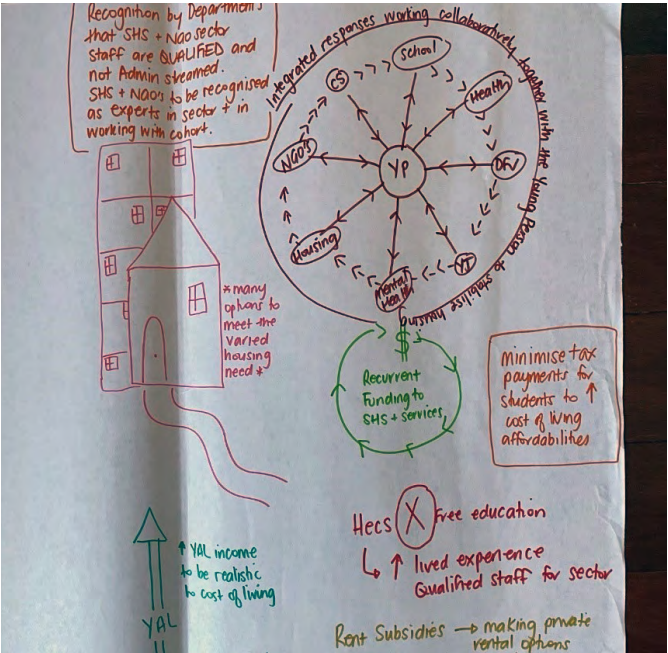 Recognition by Departments
that SHS + NGO sector
staff are QUALIFIED and
not Admin streamed.
SHS + NGO's to be recognised
as experts in sector + in
working with cohort.
Integrated responses working collaboratively together with the Young Person to stabilise housing
School
Health
DFV
YJ
Mental
Health
Housing
NGO's
CS
YP
*many
options to
meet the
varied
housing
need*
$
Recurrent
Funding to
SHS + services
minimise tax
payments for
students to ↑
cost of living
affordabilities
Hecs X Free education
↳ ↑ lived experience
Qualified staff for sector
↑ YAL income
to be realistic
to cost of living
YAL
Rent Subsidies → making private
rental options